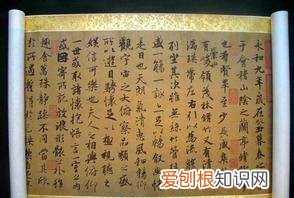 永和九年歲在癸丑暮春
于會稽山陰之蘭亭脩
也羣賢畢至少長咸集
領茂林脩竹又有清
湍暎帶左右引以為流
列坐其次雖無絲竹管
盛一觴一詠亦足以暢
是日也天朗氣清惠風和暢仰
觀宇宙之大俯察品類之
遊目騁懷足以極視
娛信可樂也夫人之相與俯仰
一世或取諸懷抱悟言一室
因寄所託放浪形骸之外雖
趣舍萬殊靜躁不同當其欣
於所遇
爱刨根知识网